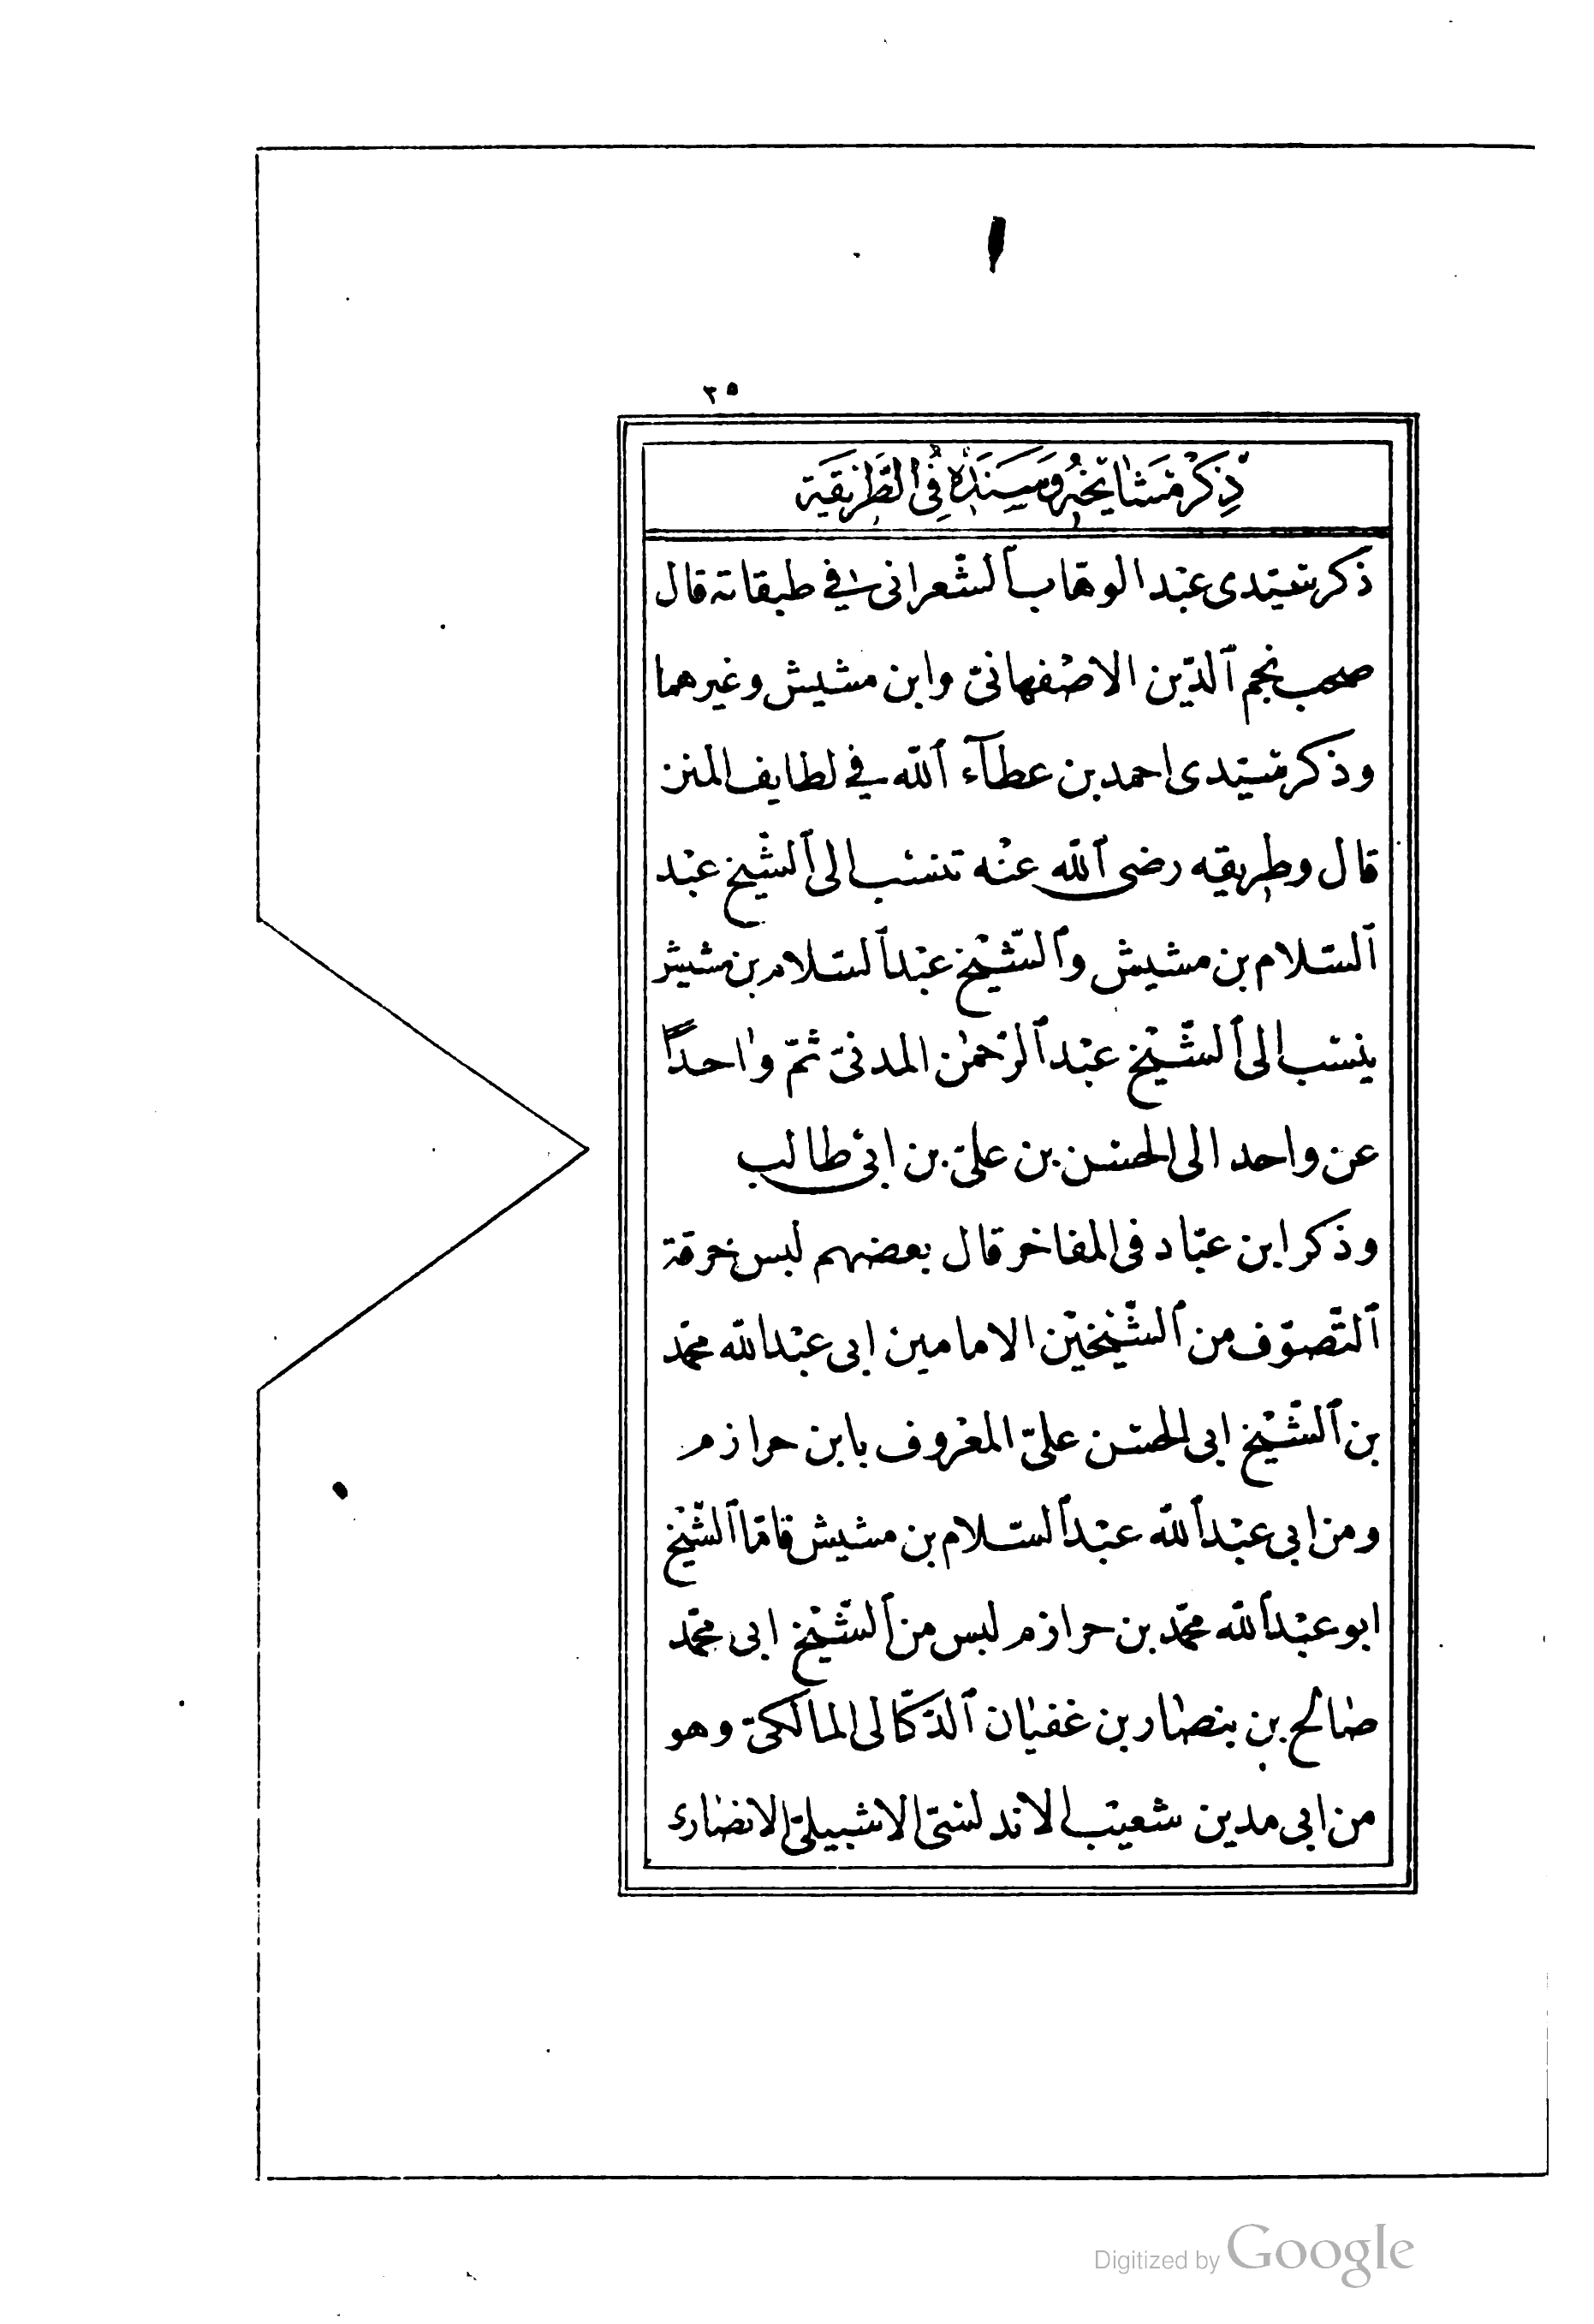 ٢٥
ذِكْر مَشَايِخِهِ وَسَنَدِهِ فِي الطَّرِيقَةِ
ذكر سيّدى عبْد الوهّاب ٱلشّعرانى فى طبقاته قال
صحب نجم ٱلدّين الاصْفهانىّ وابن مشيش وغيرهما
وذكر سيّدى احمد بن عطآء ٱللّه فى لطايف المنن
قال وطريقه رضى ٱللّه عنْه تنسب الى ٱلشّيخ عبْد
ٱلسّلام بن مشيش وٱلشّيْخ عبْد ٱلسّلام بن مشيش
ينسب الى ٱلشّيْخ عبْد ٱلرّحمٰن المدنىّ ثمّ واحداً
عن واحد الى الحسن بن علىّ بن ابى طالب
وذكر ابن عبّاد فى المفاخر قال بعضهم لبس خرقة
ٱلتّصوّف من ٱلشّيْخيْن الامامين ابى عبْد اللّه محمّد
بن ٱلشّيْخ ابى الحسن علىّ المعْروف بابن حرازم
ومن ابى عبْد ٱللّه عبْد ٱلسّلام بن مشيش فامّا ٱلشّيْخ
ابو عبْد ٱللّه محمّد بن حرازم لبس من ٱلشّيْخ ابى محمّد
صالح بن بنصار بن غفيان ٱلدّكّالى المالكىّ وهو
من ابى مدين شعيب الاندلسىّ الاشبيلىّ الانصارى
Digitized by Google